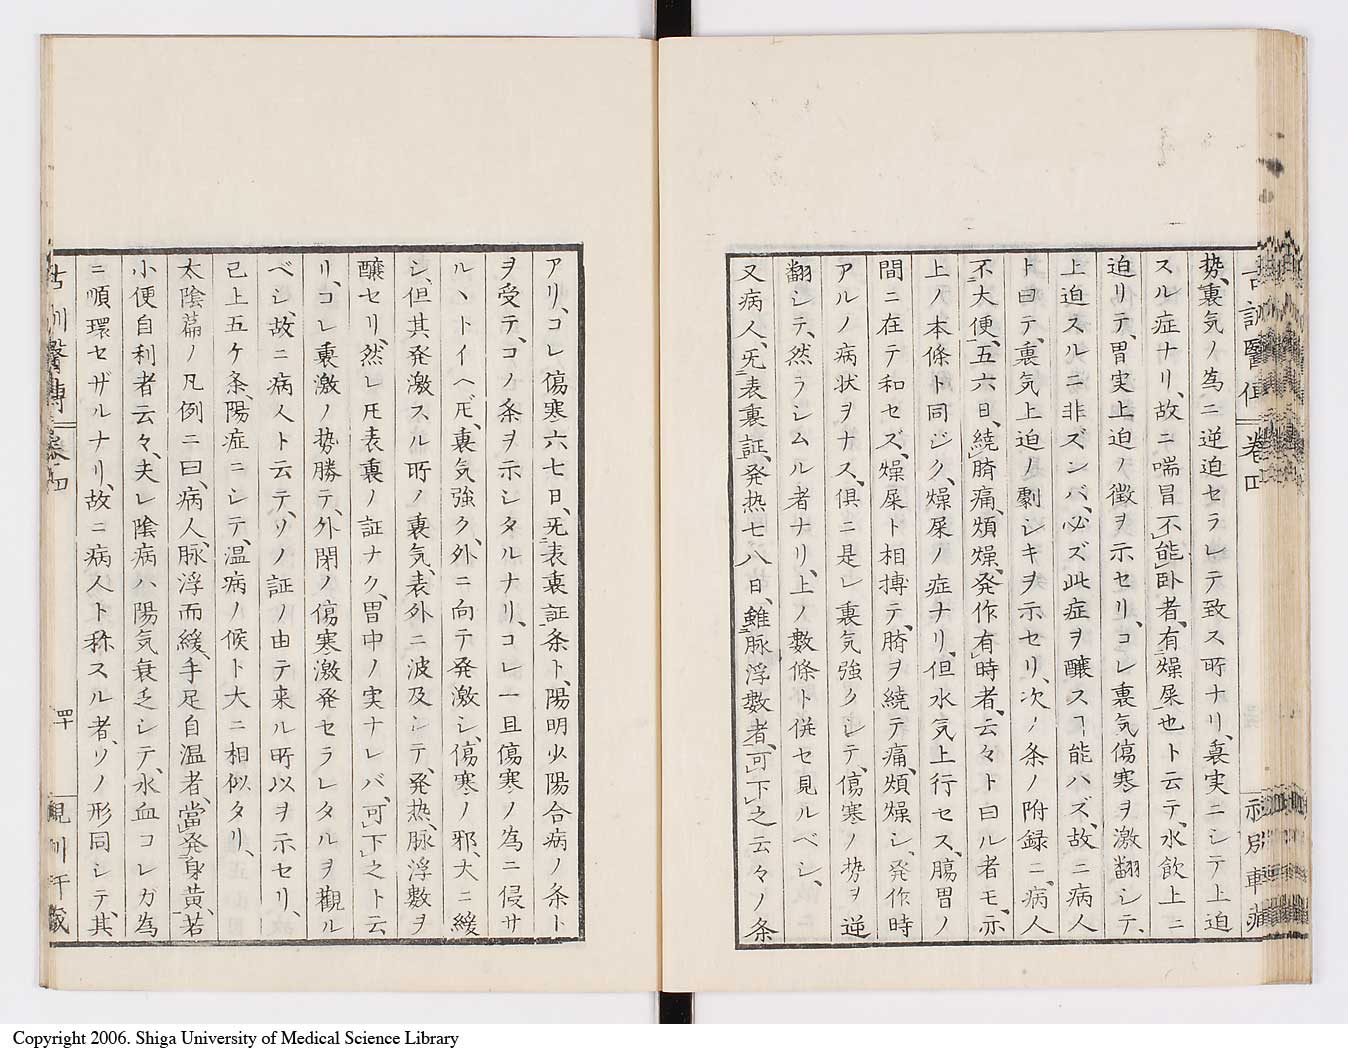 勢、裏気ノ為ニ逆迫セラレテ致ス所ナリ、裏実ニシテ上迫
スル症ナリ、故ニ喘冒不能臥者、有燥屎也ト云テ、水飲上ニ
迫リテ、胃実上迫ノ徴ヲ示セリ、コレ裏気傷寒ヲ激翻シテ、
上迫スルニ非ズンバ、必ズ此症ヲ醸スヿ能ハズ、故ニ病人
ト曰テ、裏気上迫ノ劇シキヲ示セリ、次ノ条ノ附録ニ、病人
不大便、五六日、繞臍痛、煩燥、発作有時者、云々ト曰ル者モ、亦
上ノ本條ト同ジク、燥屎ノ症ナリ、但水気上行セス、腸胃ノ
間ニ在テ和セズ、燥屎ト相搏テ、臍ヲ繞テ痛、煩燥シ、発作時
アルノ病状ヲナス、倶ニ是レ裏気強クシテ、傷寒ノ勢ヲ逆
翻シテ、然ラシムル者ナリ、上ノ數條ト併セ見ルベシ、
又病人、无表裏証、発热七八日、雖脉浮數者、可下之云々ノ条
アリ、コレ傷寒六七日、无表裏証条ト、陽明少陽合病ノ条ト
ヲ受テ、コノ条ヲ示シタルナリ、コレ一旦傷寒ノ為ニ侵サ
ルヽトイヘ𪜈、裏気強ク、外ニ向テ発激シ、傷寒ノ邪、大ニ緩
シ、但其発激スル所ノ裏気、表外ニ波及シテ、発热、脉浮數ヲ
醸セリ、然レ𪜈表裏ノ証ナク、胃中ノ実ナレバ、可下之ト云
リ、コレ裏激ノ势勝テ、外閉ノ傷寒激発セラレタルヲ觀ル
ベシ、故ニ病人ト云テ、ソノ証ノ由テ来ル所以ヲ示セリ、
已上五ケ条、陽症ニシテ、温病ノ候ト大ニ相似タリ、
太陰篇ノ凡例ニ曰、病人、脉浮而緩、手足自温者、當発身黄、若
小便自利者云々、夫レ陰病ハ陽気衰乏シテ、水血コレガ為
ニ順環セザルナリ、故ニ病人ト称スル者、ソノ形同シテ、其